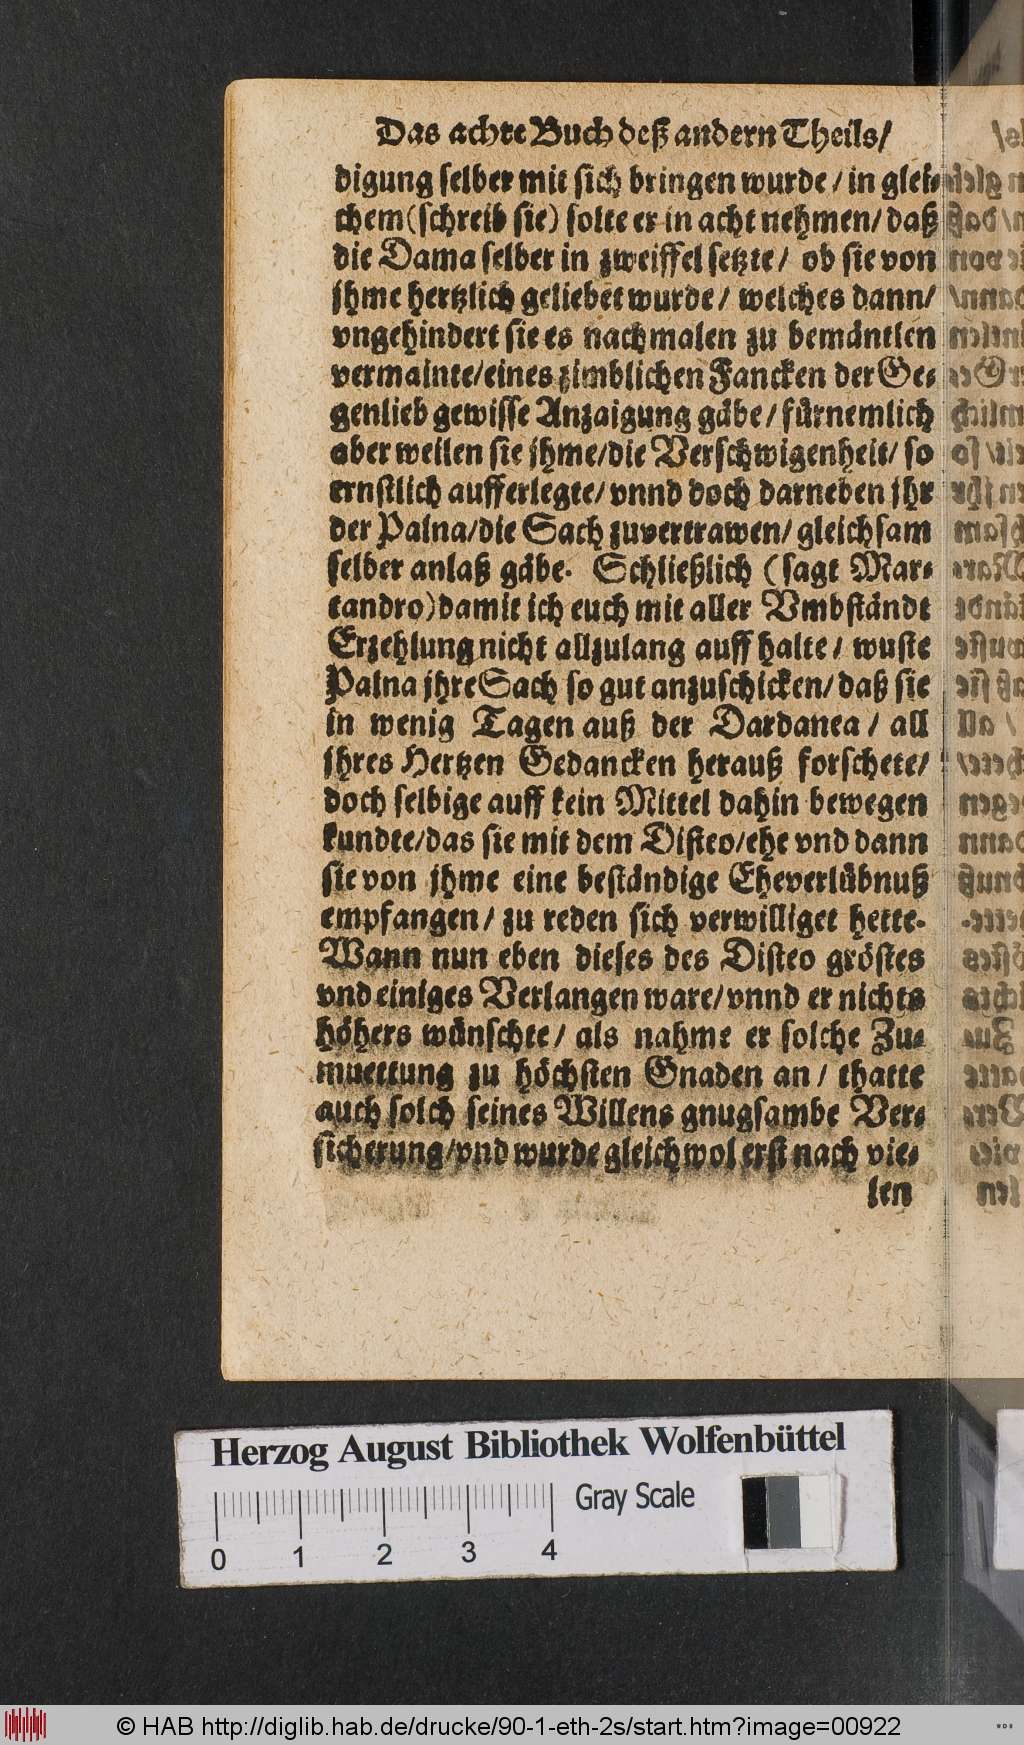 Das achte Buch deß andern Theils/
digung selber mit sich bringen wurde / in glei-
chem (schreib sie) solte er in acht nehmen / daß
die Dama selber in zweiffel setzte / ob sie von
jhme hertzlich geliebet wurde / welches dann /
vngehindert sie es nachmalen zu bemäntlen
vermainte / eines zimblichen Fancken der Ge-
genlieb gewisse Anzaigung gäbe / fürnemlich
aber weilen sie jhme / die Verschwigenheit / so
ernstlich aufferlegte / vnnd doch darneben jhr
der Palna / die Sach zuvertrawen / gleichsam
selber anlaß gäbe. Schließlich (sagt Mar-
tandro) damit ich euch mit aller Vmbständt
Erzehlung nicht allzulang auff halte / wuste
Palna jhre Sach so gut anzuschicken / daß sie
in wenig Tagen auß der Dardanea / all
jhres Hertzen Gedancken herauß forschete /
doch selbige auff kein Mittel dahin bewegen
kundte / das sie mit dem Disteo / ehe vnd dann
sie von jhme eine beständige Eheverlübnuß
empfangen / zu reden sich verwilliget hette.
Wann nun eben dieses des Disteo gröstes
vnd einiges Verlangen ware / vnnd er nichts
höhers wünschte / als nahme er solche Zu-
muettung zu höchsten Gnaden an / thatte
auch solch seines Willens gnugsambe Ver-
sicherung / vnd wurde gleichwol erst nach vie-
len
Herzog August Bibliothek Wolfenbüttel
Gray Scale
0 1 2 3 4
© HAB http://diglib.hab.de/drucke/90-1-eth-2s/start.htm?image=00922